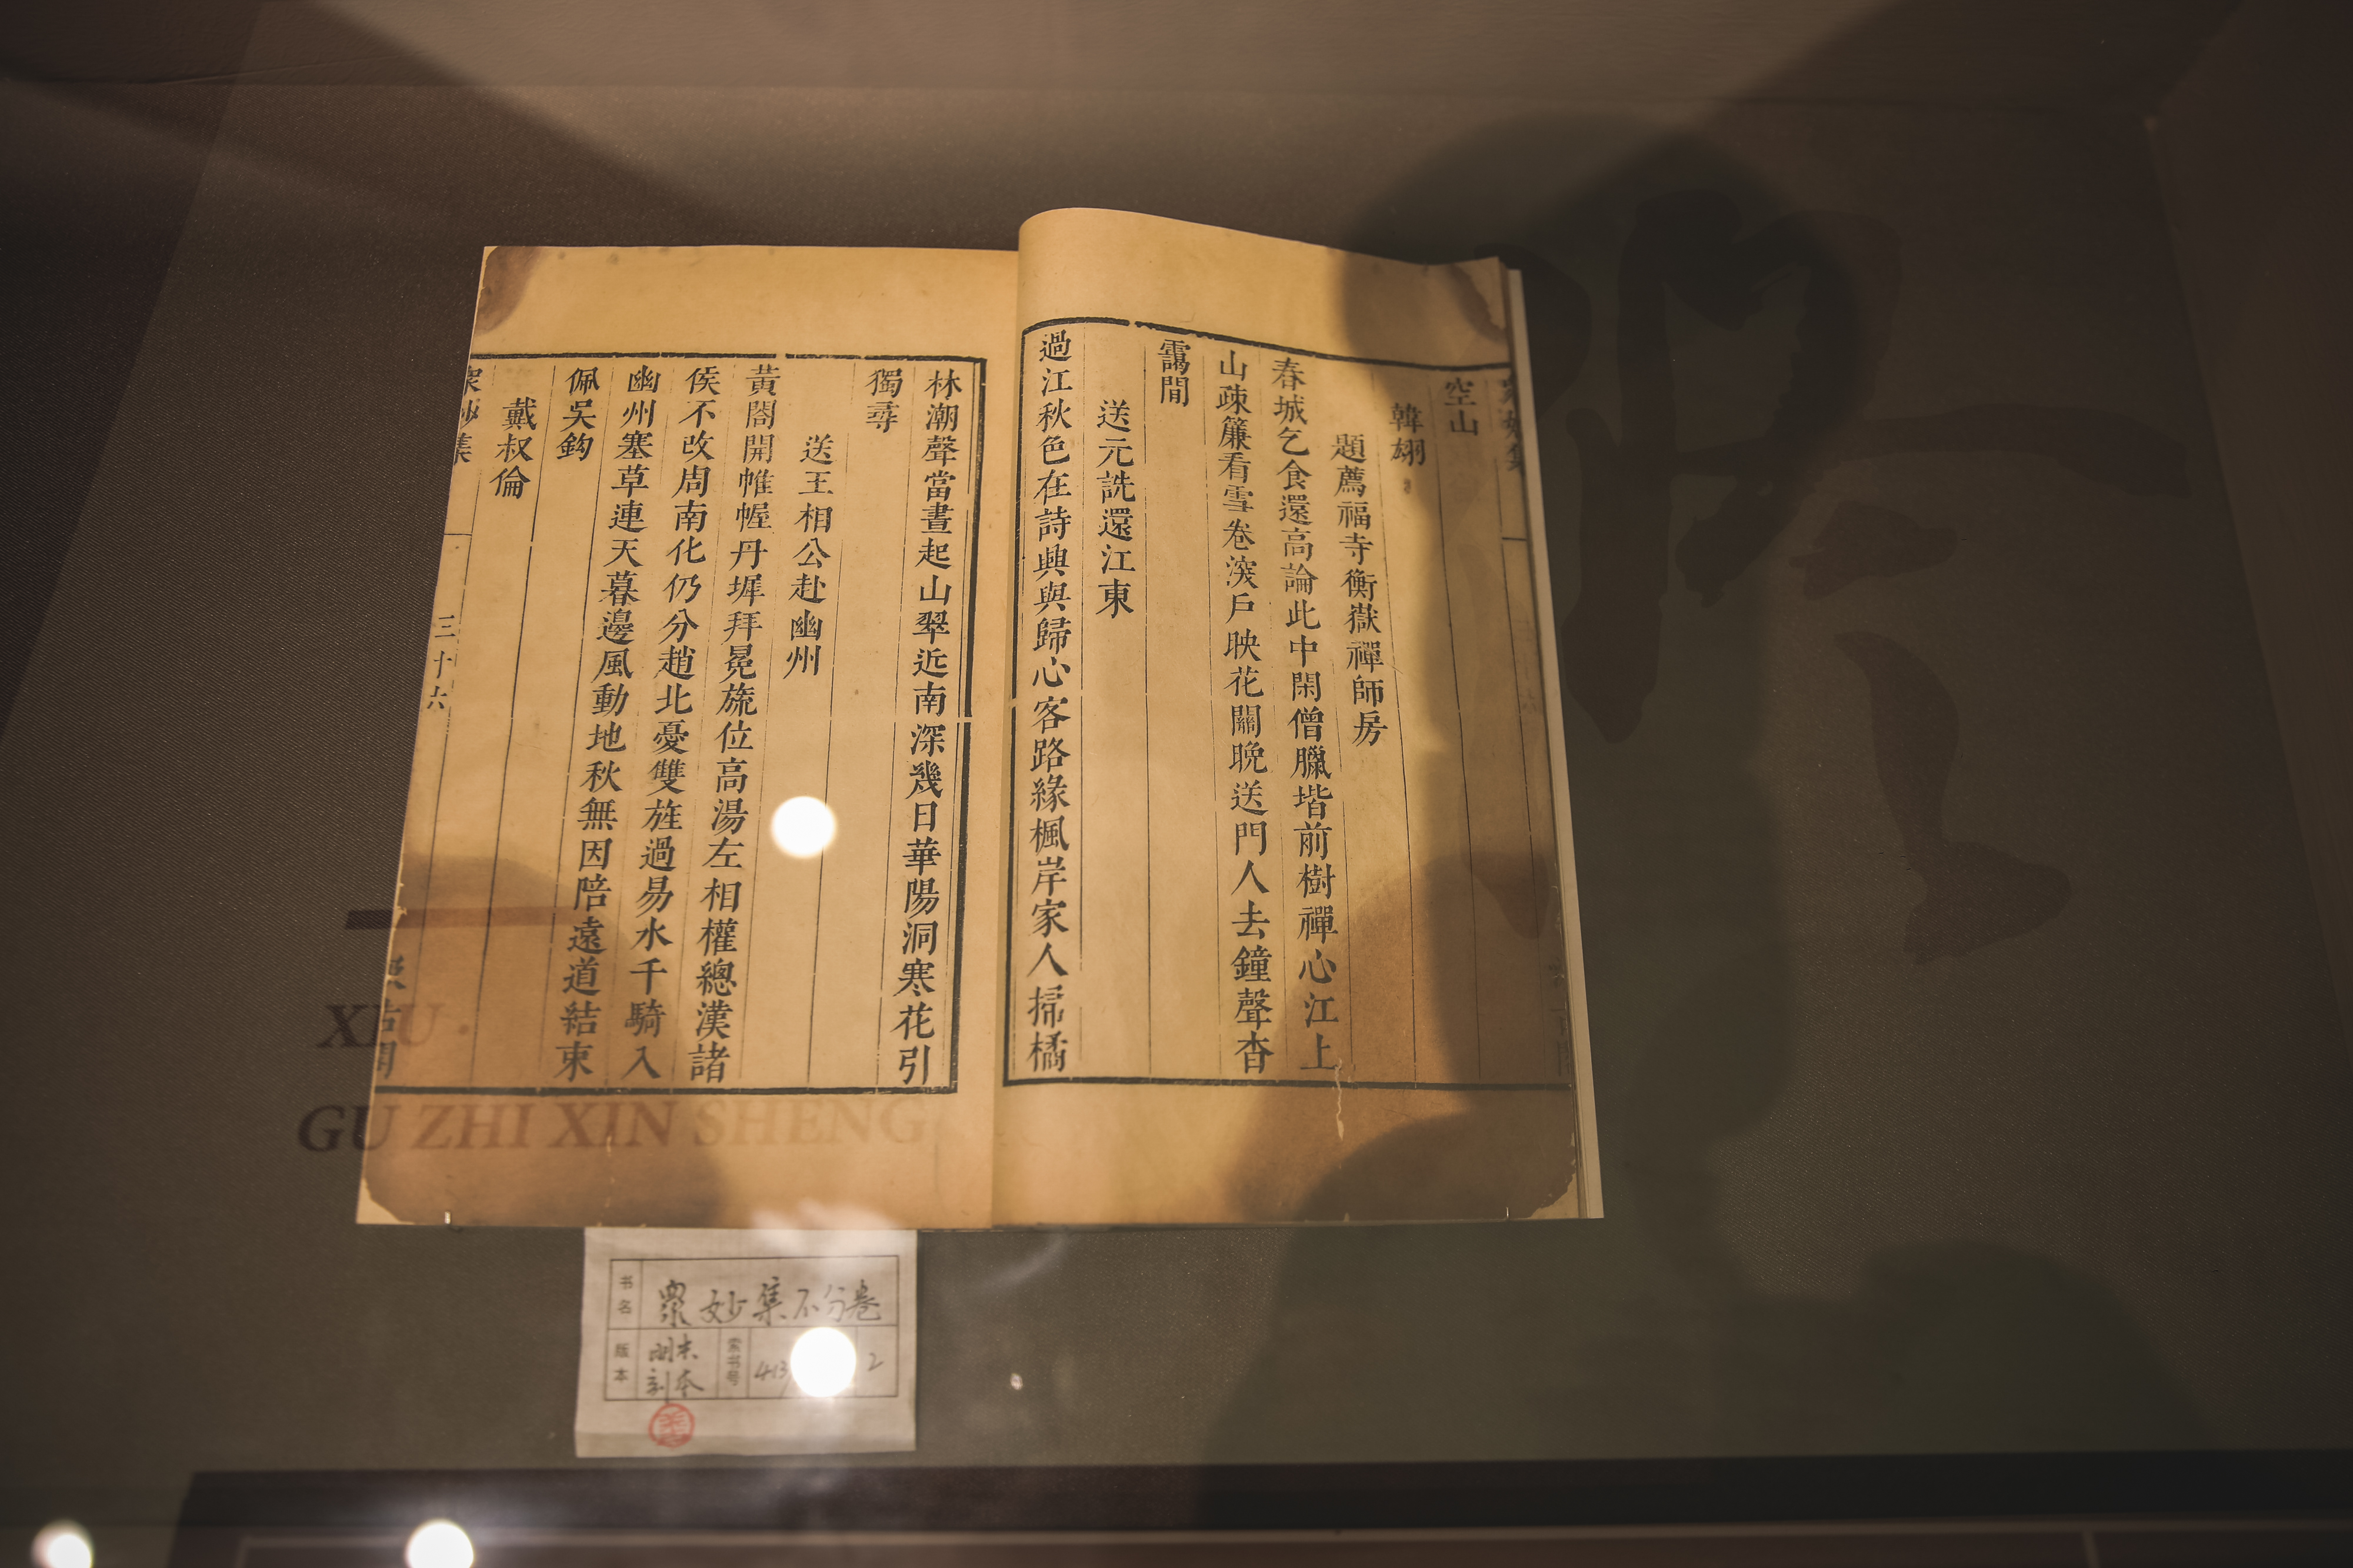 空山
韓翃
題薦福寺衡嶽禪師房
春城乞食還高論此中閑僧臘堦前樹禪心江上
山疎簾看雪卷深戶映花關晚送門人去鐘聲杳
靄間
送元詵還江東
過江秋色在詩興與歸心客路緣楓岸家人掃橘
林潮聲當晝起山翠近南深幾日華陽洞寒花引
獨尋
送王相公赴幽州
黃閤開帷幄丹墀拜冕旒位高湯左相權總漢諸
侯不改周南化仍分趙北憂雙旌過易水千騎入
幽州塞草連天暮邊風動地秋無因陪遠道結束
佩吳鈎
戴叔倫
衆妙集
三十六
XIU
GU ZHI XIN SHENG
书名
衆妙集不分卷
版本
明末刻本
索书号
413
2